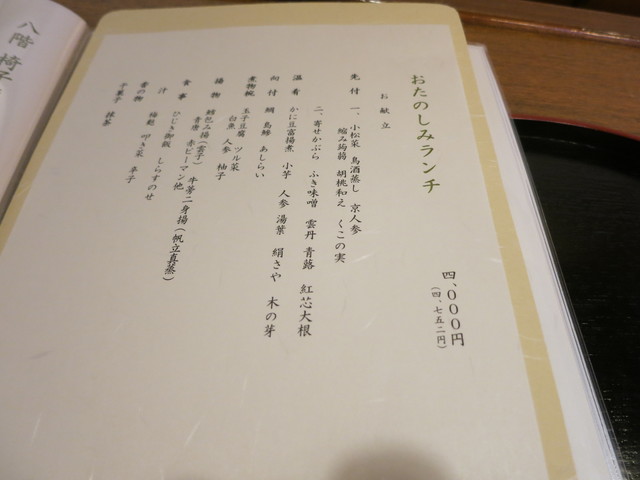 おたのしみランチ
四、〇〇〇円
(四、七五二円)
お献立
先付 一、小松菜 鳥酒蒸し 京人参
縮み蒟蒻 胡桃和え くこの実
二、寄せかぶら ふき味噌 雲丹 青蕗 紅芯大根
温肴 かに豆富揚煮 小芋 人参 湯葉 絹さや 木の芽
向付 鯛 島鯵 あしらい
煮物椀 玉子豆腐 ツル菜
白魚 人参 柚子
揚物 鱈包み揚(雲子) 牛蒡二身揚(帆立真蒸)
青唐 赤ピーマン他
食事 ひじき御飯 しらすのせ
汁
香の物 叩き菜 辛子
干菓子 抹茶
八階 椅子